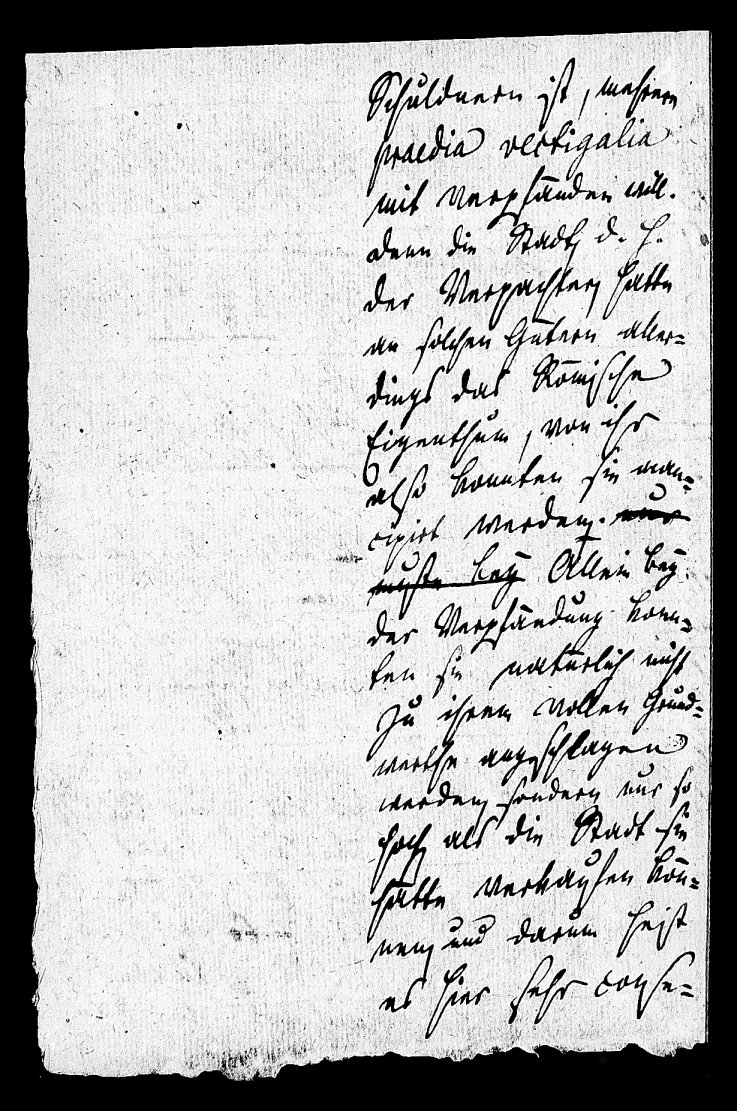 Schuldnern ist, mehrere
praedia vectigalia
mit verpfänden will.
denn die Stadt, d. h.
der Verpachter, hatte
an solchen Gütern aller=
dings das Römische
Eigenthum, von ihr
also konnten sie man=
cipirt werden. nur
mußte bey Allein bey
der Verpfändung konn=
ten sie natürlich nicht
zu ihrem vollen Grund=
werthe angeschlagen
werden, sondern nur so
hoch, als die Stadt sie
hätte verkaufen kön=
nen, und darum heist
es hier sehr conse=